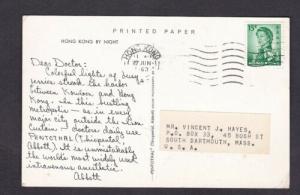 PRINTED PAPER
HONG KONG BY NIGHT
HONG KONG
27 JUN
63
15
Dear Doctor:
Colorful lights of busy
ferries streak the harbor
between Kowloon and Hong
Kong. In this bustling
metropolis — as in every
major city outside the Iron
Curtain — doctors daily use
PENTOTHAL (Thiopental,
Abbott). It is unmistakably
the worlds most widely used
intravenous anesthetic.
Abbott
MR. VINCENT J. HAYES,
P.O. BOX 33, 45 HUGH ST
SOUTH DARTMOUTH, MASS.
U.S.A.